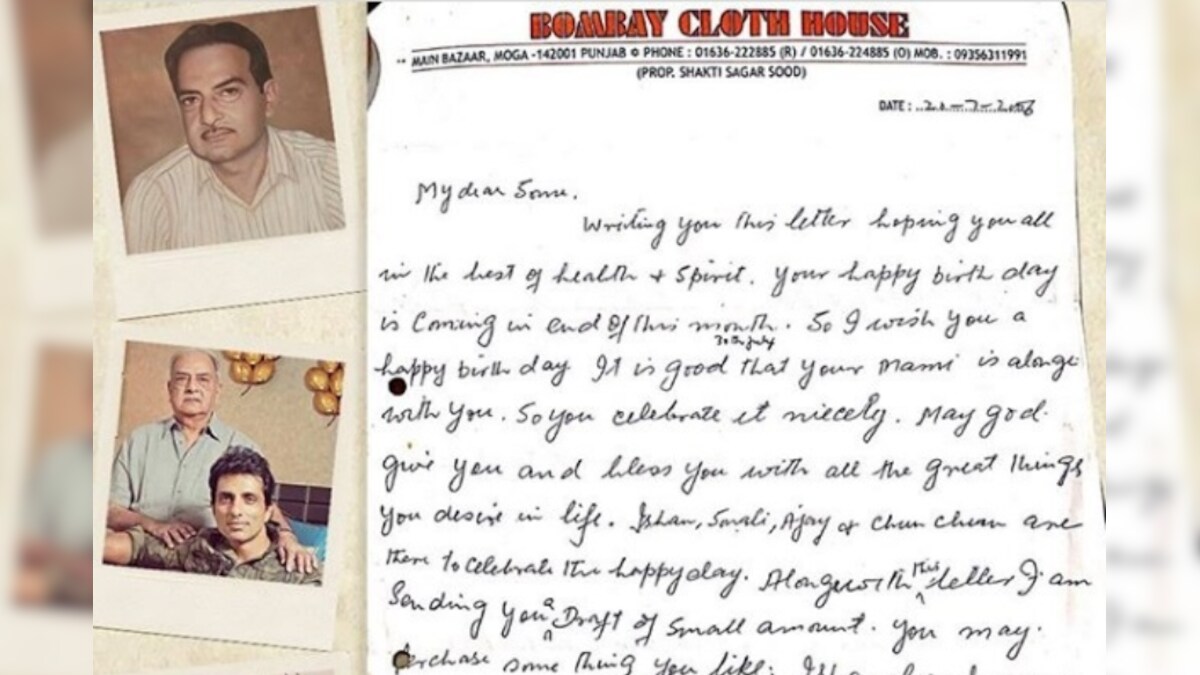 BOMBAY CLOTH HOUSE
MAIN BAZAAR, MOGA -142001 PUNJAB PHONE : 01636-222885 (R) / 01636-224885 (O) MOB. : 09356311991
(PROP. SHAKTI SAGAR SOOD)
DATE :
My dear Sonu.
Writing you this letter hoping you all
in the best of health + Spirit. Your happy birth day
is Coming in end of this month. So I wish you a
30th July
happy birth day It is good that your Mami is alonge
with you. So you celebrate it niecely. May god
give you and bless you with all the great things
you desire in life. Ishan, Sonali, Ajay & Chun chun are
there to celebrate the happy day. Alongewith this letter I am
Sending you a Draft of Small amount. You may
some thing you like.